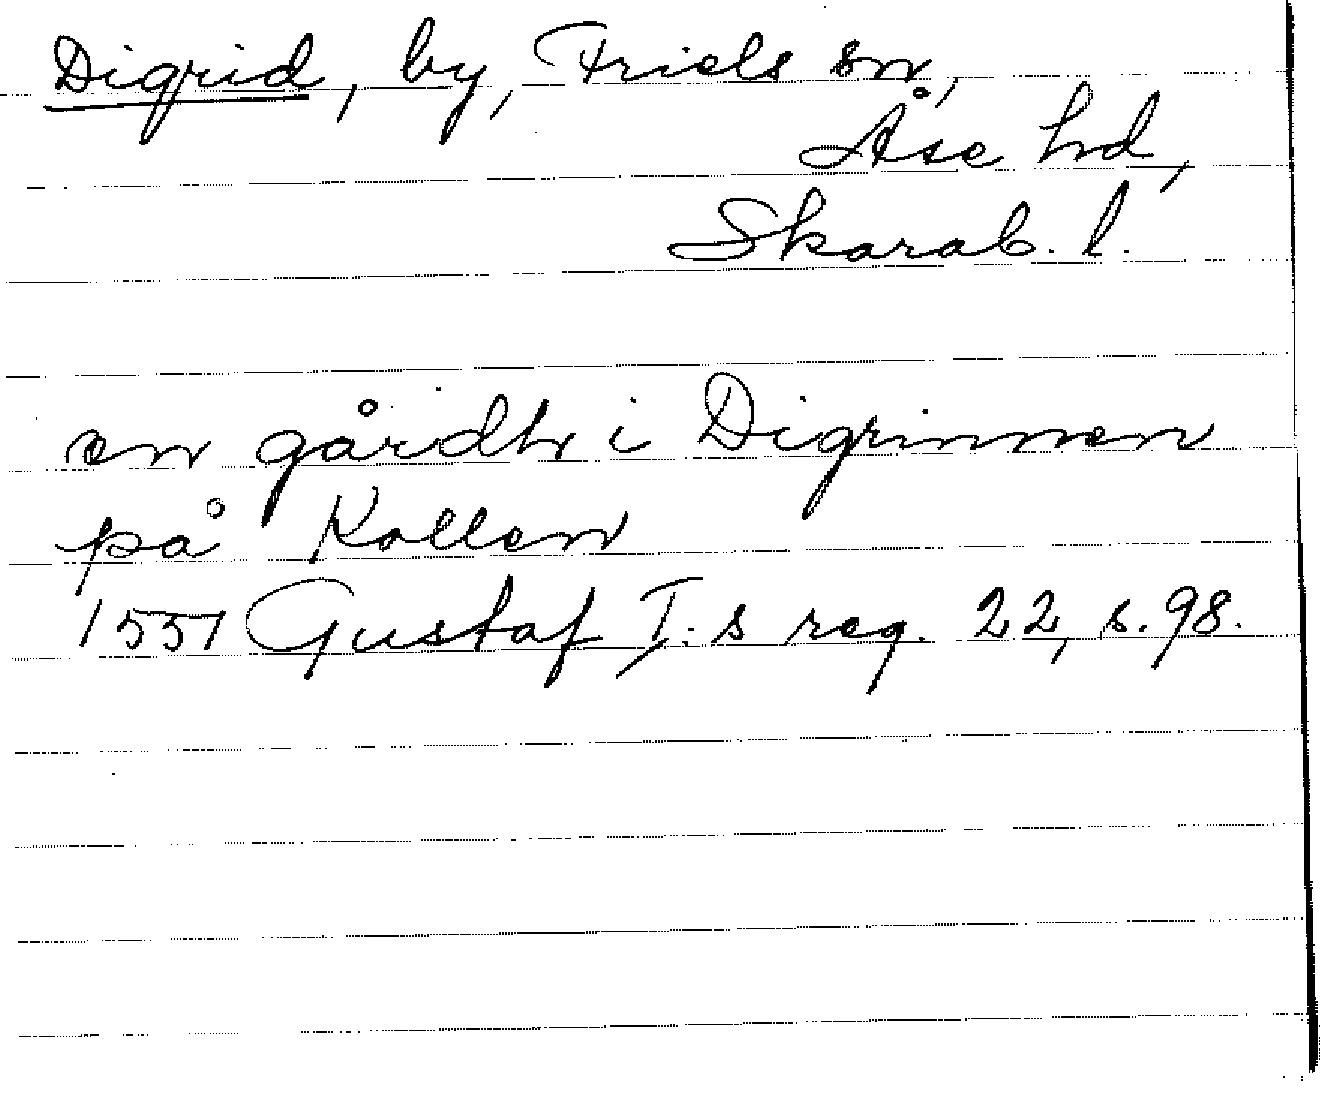 Digrid, by, Friels sn,
Åse hd,
Skarab. l.
en gårdh i Digrinnen
på Kollen
1551 Gustaf I:s reg. 22, s. 98.